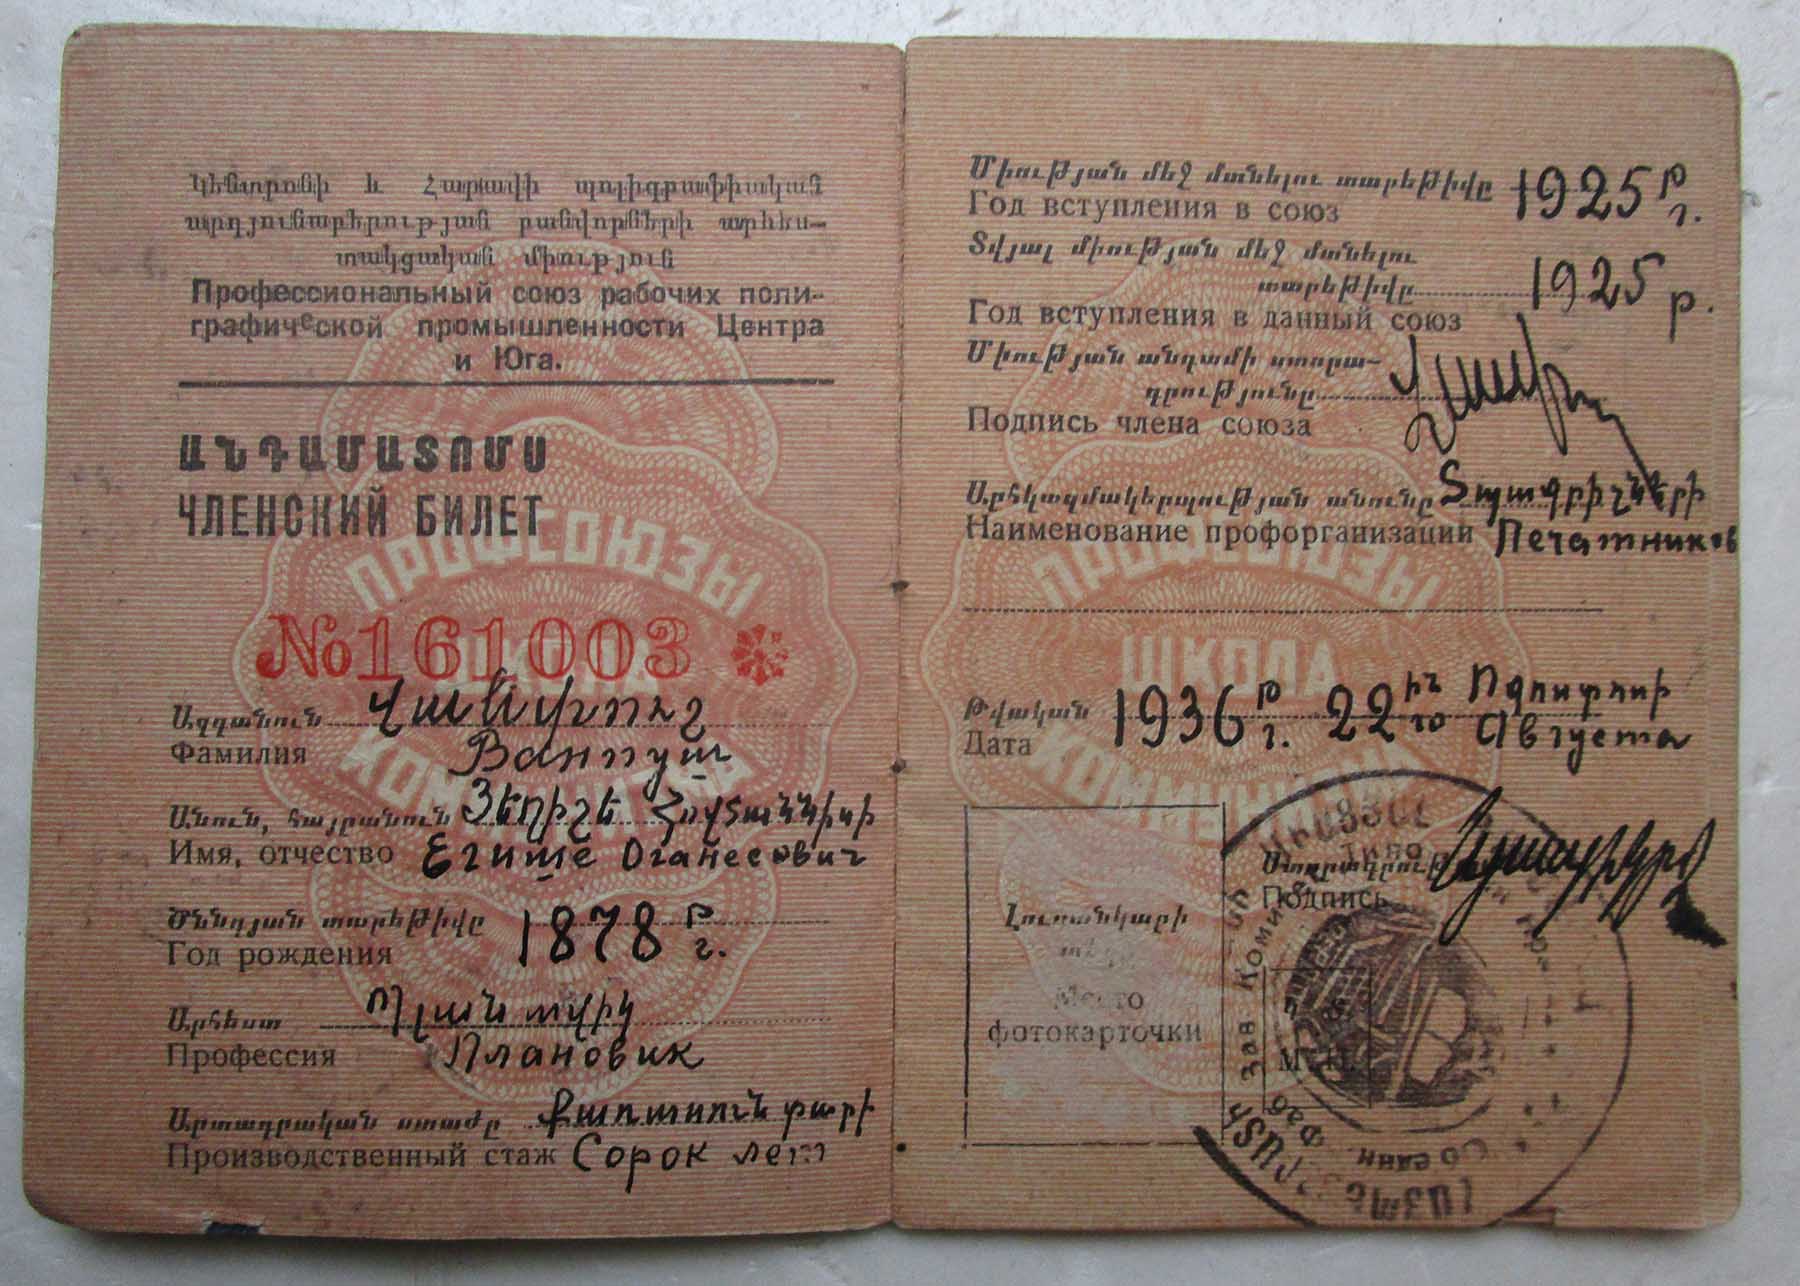 Կենտրոնի և Հարավի պոլիգրաֆիական
արդյունաբերության բանվորների արհես-
տակցական միություն
Профессиональный союз рабочих поли-
графической промышленности Центра
и Юга.
ԱՆԴԱՄԱՏՈՄՍ
ЧЛЕНСКИЙ БИЛЕТ
ПРОФСОЮЗЫ
ШКОЛА
КОММУНИЗМА
№161003
Ազգանուն Վանփուշ
Фамилия Ванпуш
Անուն, հայրանուն Յեղիշե Հովհաննիսի
Имя, отчество Егише Оганесович
Ծննդյան տարեթիվը 1878 թ.
Год рождения г.
Արհեստ Պլանավիկ
Профессия Плановик
Արտադրական ստաժը Քառասուն տարի
Производственный стаж Сорок лет
Միության մեջ մտնելու տարեթիվը 1925 թ.
Год вступления в союз г.
Տվյալ միության մեջ մտնելու
տարեթիվը 1925 թ.
Год вступления в данный союз
Միության անդամի ստորա-
գրությունը
Подпись члена союза
Արհկազմակերպության անունը Տպագրիչների
Наименование профорганизации Печатников
ПРОФСОЮЗЫ
ШКОЛА
КОММУНИЗМА
Թվական 1936 թ. 22 ին Ոգոստոսի
Дата г. го Августа
Ստորագրութ
Подпись
Լուսանկարի
տեղը
Место
фотокарточки
М. П.
Зав Коми